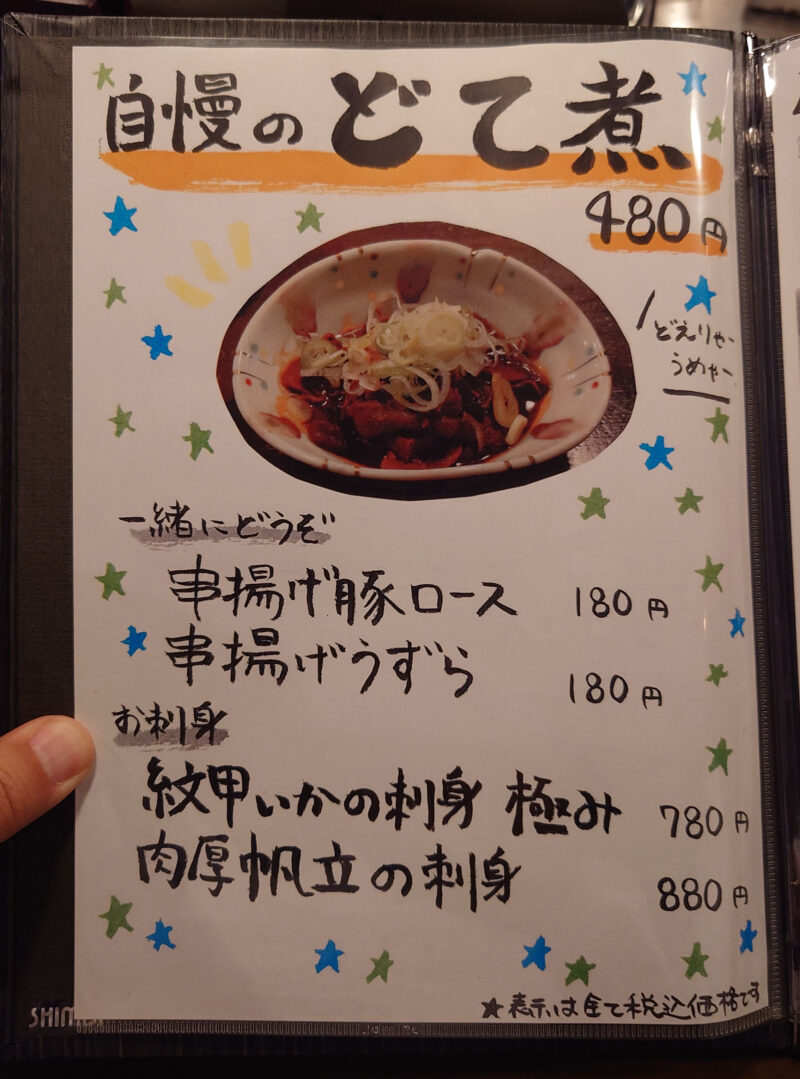 自慢のどて煮
480円
どえりゃー
うめゃー
一緒にどうぞ
串揚げ豚ロース 180円
串揚げうずら 180円
お刺身
紋甲いかの刺身 極み 780円
肉厚帆立の刺身 880円
★表示は全て税込価格です